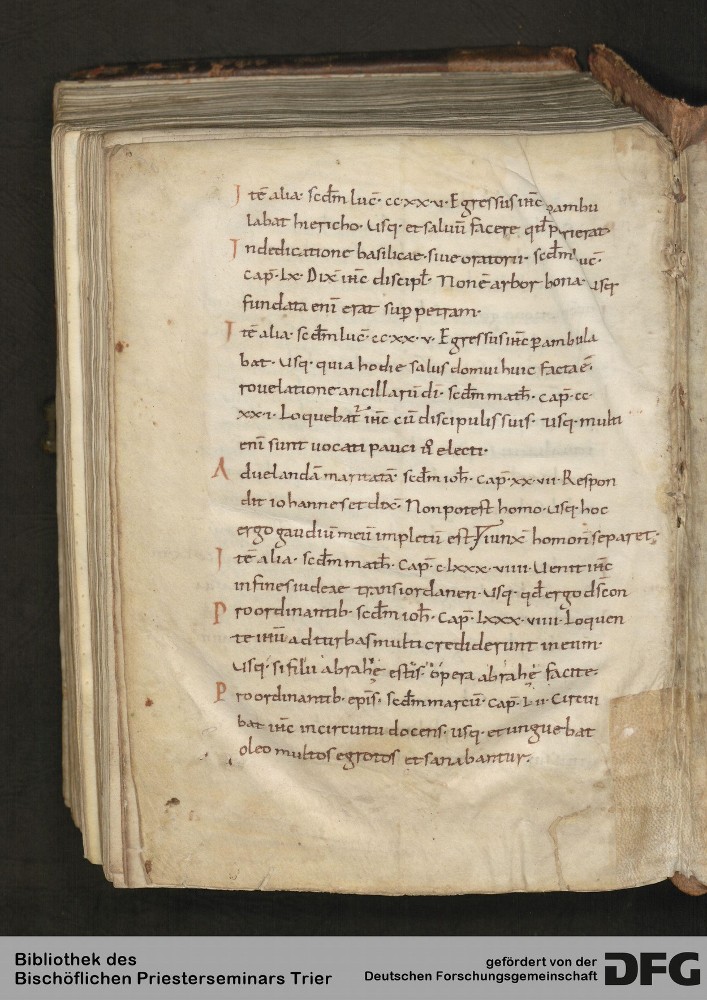 Itē alia· scdm̄ luc̄· cc·xx·v· Egressus ihc̄ pambu
labat hiericho· usq· et saluū facere qd̄ perierat·
In dedicatione basilicae· siue oratorii· scdm̄ luc̄·
cap̄· lx· Dix̄ ihc̄ discipl̄· Non ē arbor bona· usq·
fundata enī erat sup̄ petram·
Itē alia· scdm̄ luc̄· cc·xx·v· Egressus ihc̄ p̄ambula
bat· usq· quia hodie salus domui huic facta ē·
rouelatione ancillarū dī· scdm̄ math̄· cap̄· cc
xx·i· Loquebat̄ ihc̄ cū discipulis suis· usq· multi
enī sunt uocati pauci ū electi·
Aduelandā maritatā· scdm̄ ioh̄· cap̄· xx·vii· Respon
dit iohannes et dix̄· Non potest homo· usq· hoc
ergo gaudiū meū impletū est iunx̄ homo n̄ separet·
Itē alia· scdm̄ math̄· cap̄· c·lxxx·viiii· Uenit ihc̄
in fines iudeae transiordanen· usq· qd̄ ergo ds̄ con
Pro ordinantib· scdm̄ ioh̄· cap̄· lxxx·viiii· Loquen
te ihū ad turbas multi crediderunt in eum·
usq· si filii abrahę estis· opera abrahę facite·
Pro ordinantib· epīs· scdm̄ marcū· cap̄· l·ii· Circui
bat ihc̄ in circuitu docens· usq· et unguebat
oleo multos egrotos et sanabantur·
Bibliothek des
Bischöflichen Priesterseminars Trier
gefördert von der
Deutschen Forschungsgemeinschaft
DFG